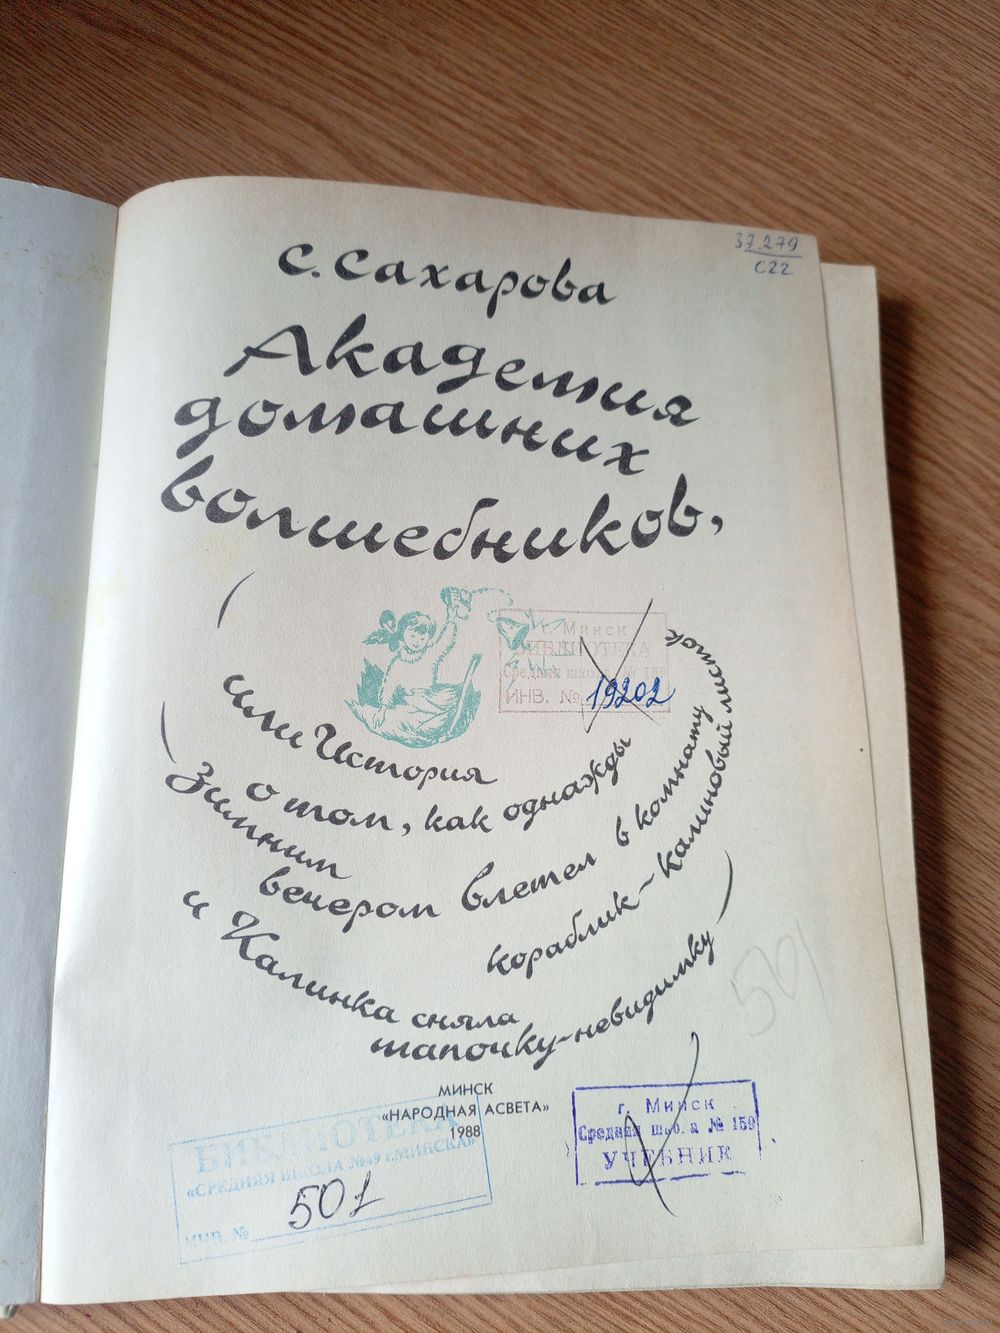 37.279
С22
С. Сахарова
Академия
домашних
волшебников,
г. Минск
БИБЛИОТЕКА
Средняя школа № 159
ИНВ. № 19202
или История
о том, как однажды
Зимним
вечером влетел в комнату
кораблик-калиновый листок
и Калинка сняла
тапочку-невидимку
501
МИНСК
«НАРОДНАЯ АСВЕТА»
1988
БИБЛИОТЕКА
«СРЕДНЯЯ ШКОЛА №49 г.МИНСКА»
ИНВ. № 501
г. Минск
Средняя школа № 159
УЧЕБНИК